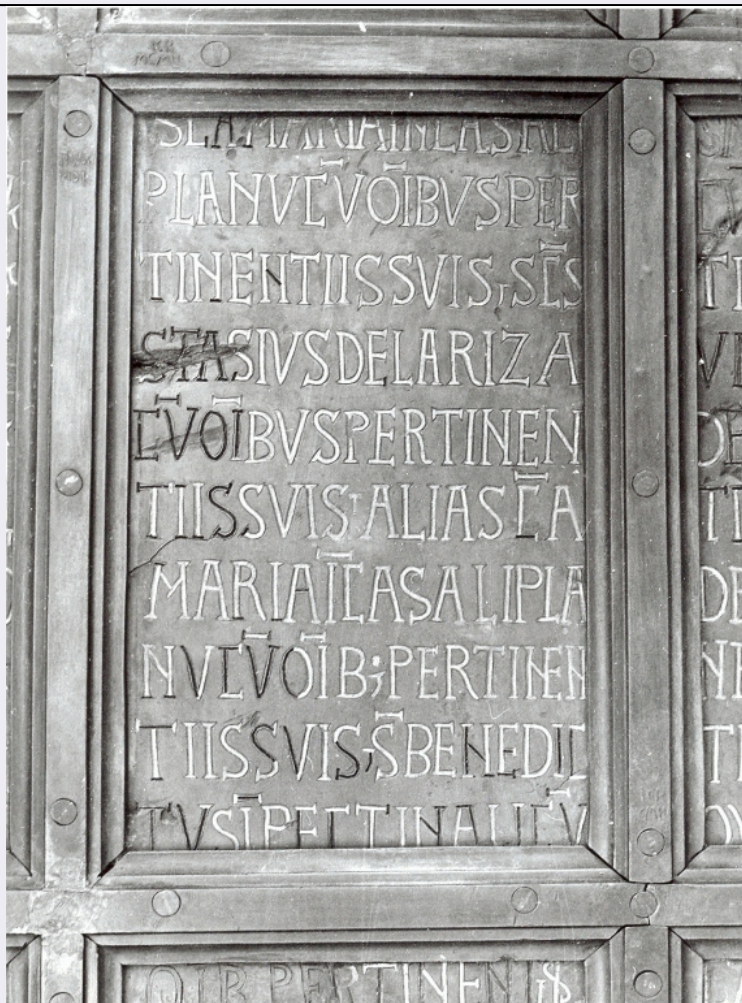 SC̄A MARIA IN CASALI
PLANU C̄V OĪBVS PER
TINENTIIS SVIS; SC̄S
STASIVS DE LARIZA
C̄V OĪBVS PERTINEN
TIIS SVIS ALIA SC̄A
MARIA Ī CASALI PLA
NV C̄V OĪB; PERTINEN
TIIS SVIS; S̄ BENEDIC
TVS Ī PECTINALI C̄V
OIB PERTINENTIIS